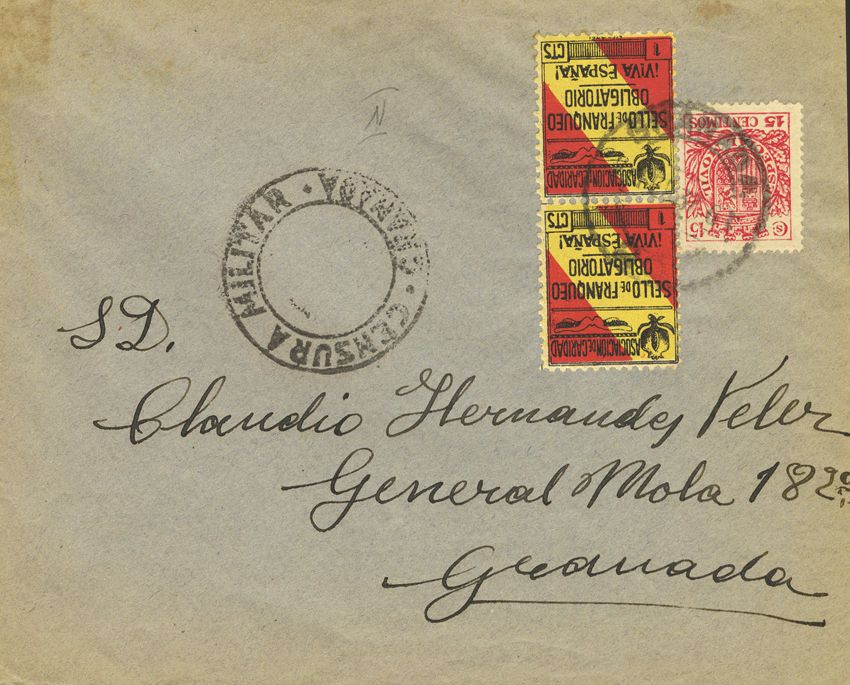 1 CTS
¡VIVA ESPAÑA!
OBLIGATORIO
SELLO DE FRANQUEO
ASOCIACION DE CARIDAD
1 CTS
¡VIVA ESPAÑA!
OBLIGATORIO
SELLO DE FRANQUEO
ASOCIACION DE CARIDAD
15 CENTIMOS
ESPECIAL MOVIL
15 Cs
CENSURA MILITAR · GRANADA ·
SD.
Claudio Hernandez Veler
General Mola 18 2º
Granada